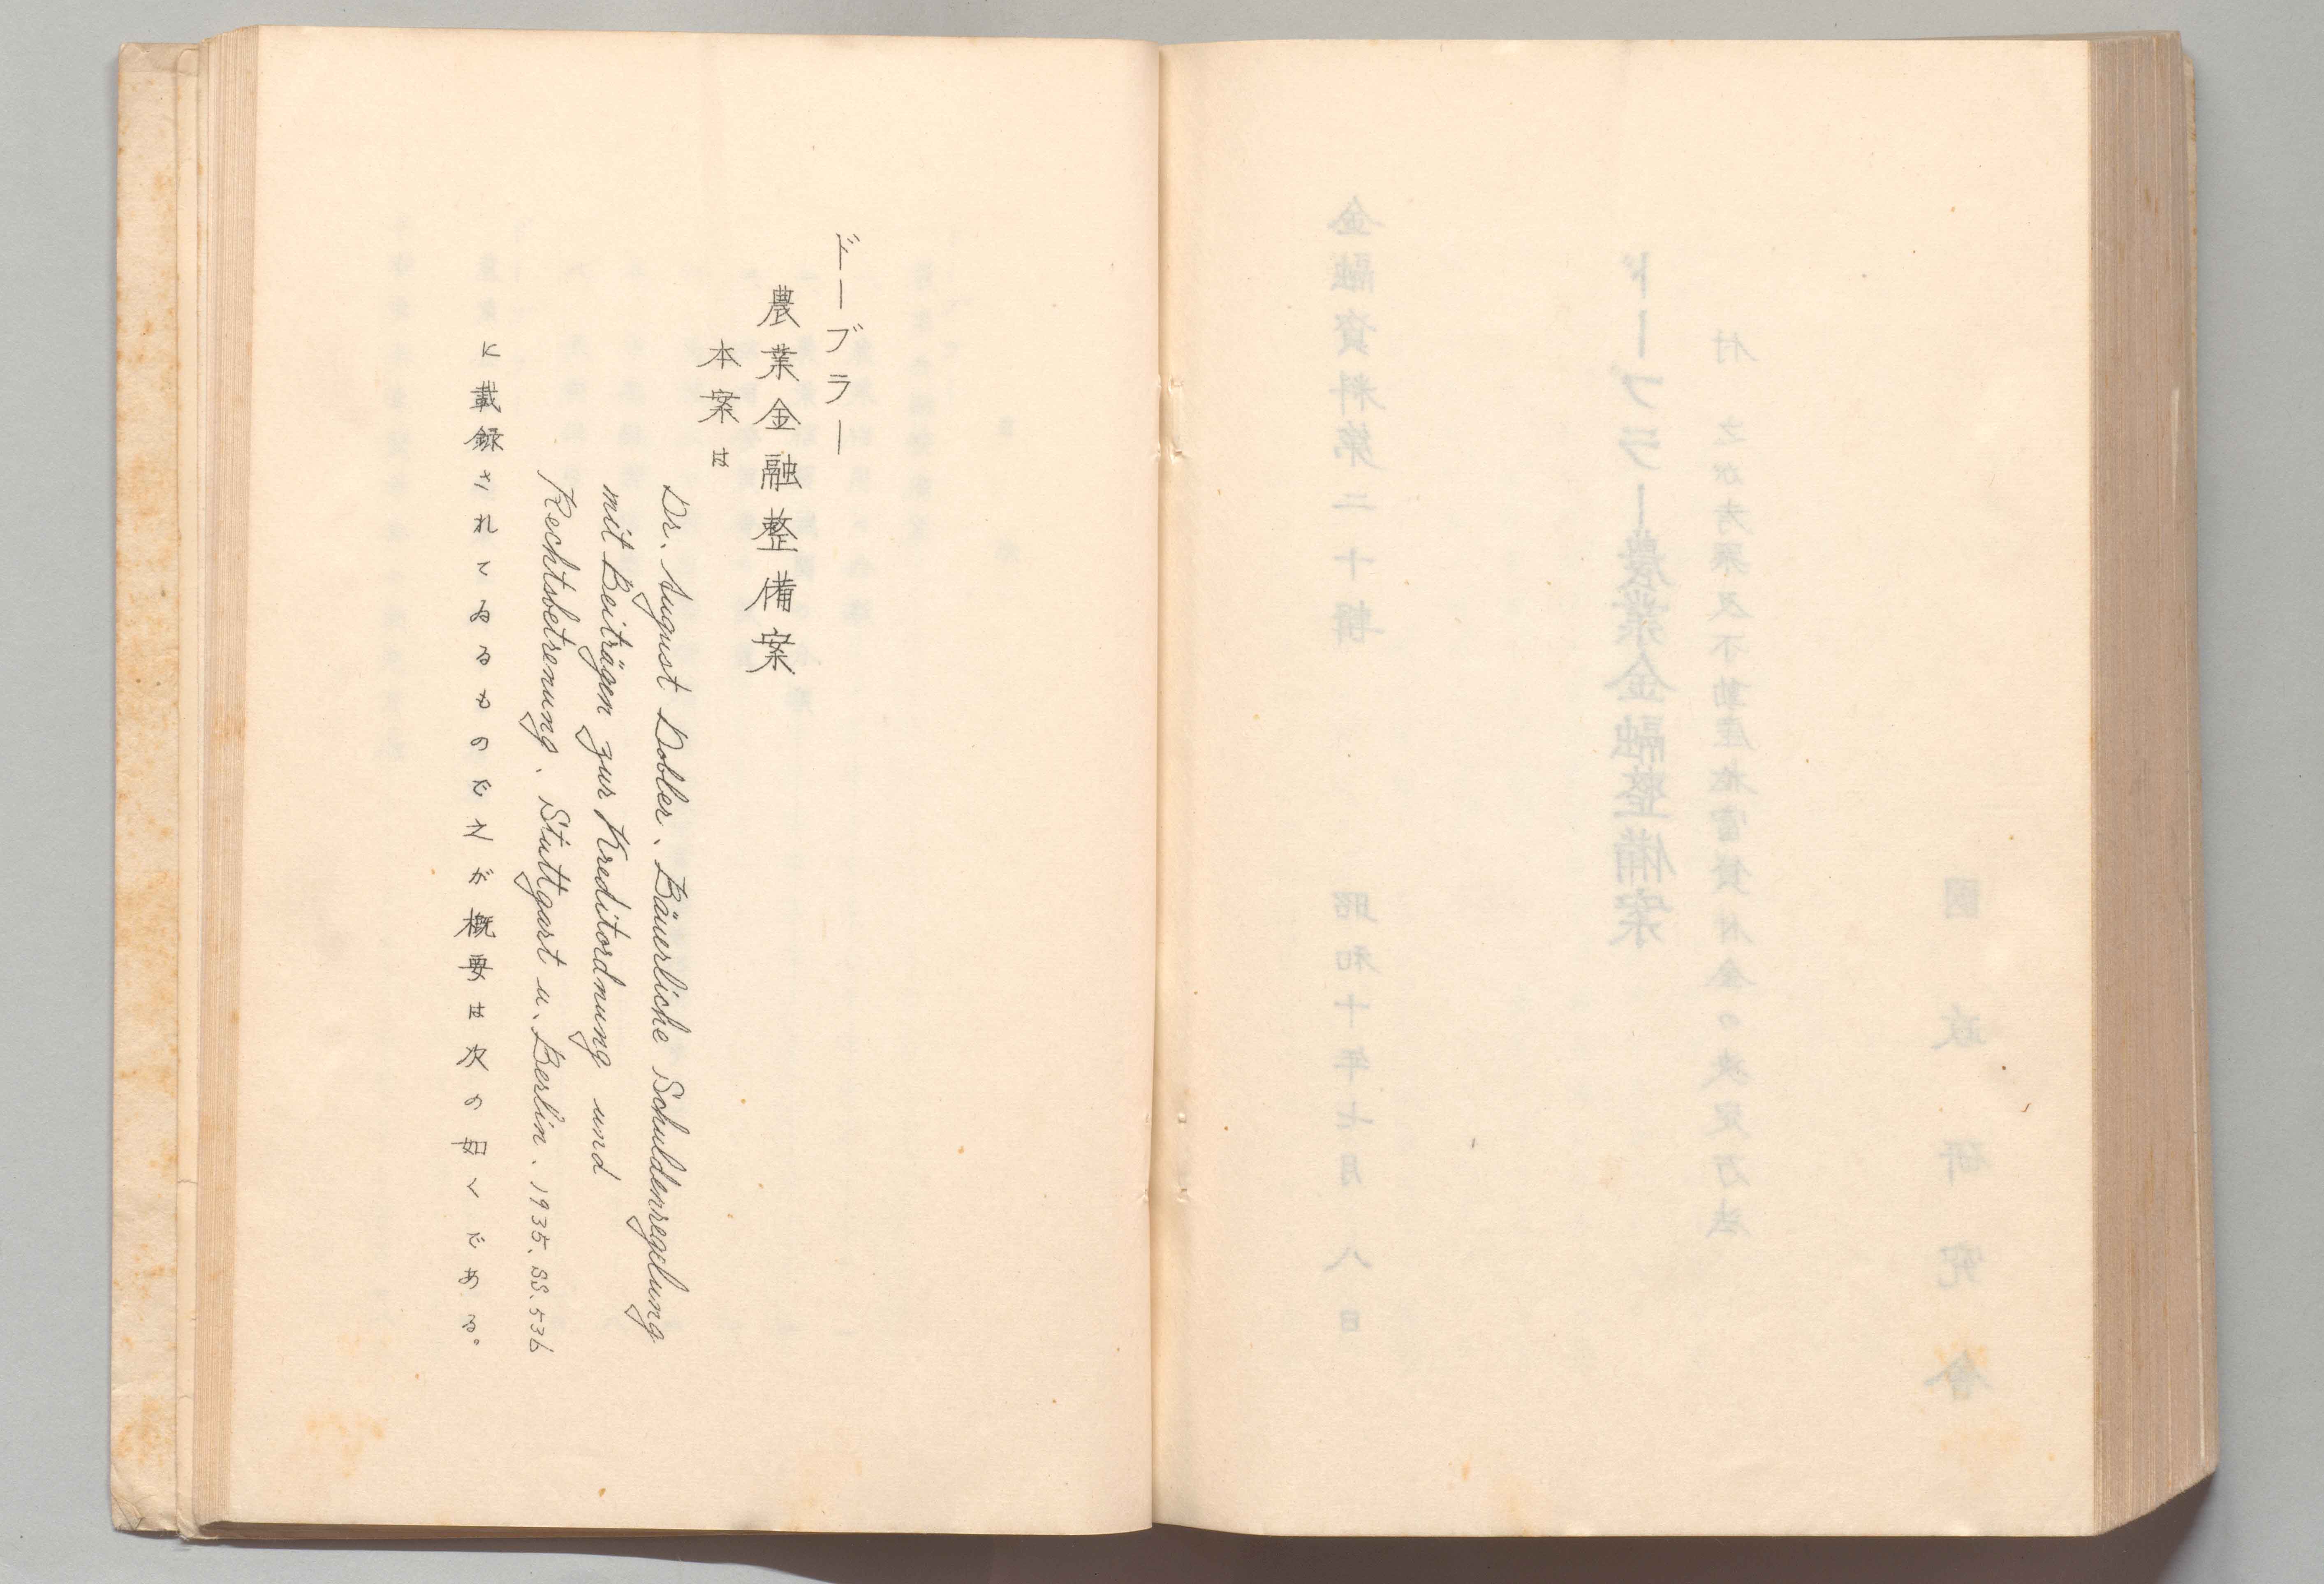 ドーブラー
農業金融整備案
本案は
Dr. August Dobler, Bäuerliche Schuldenregelung
mit Beiträgen zur Kreditordnung und
Rechtsbetreuung, Stuttgart u. Berlin, 1935, SS. 536
に載録されてゐるものだ之が概要は次の如くである。
金融資料第二十輯
昭和十年七月八日
ドーブラー農業金融整備案
國政研究會